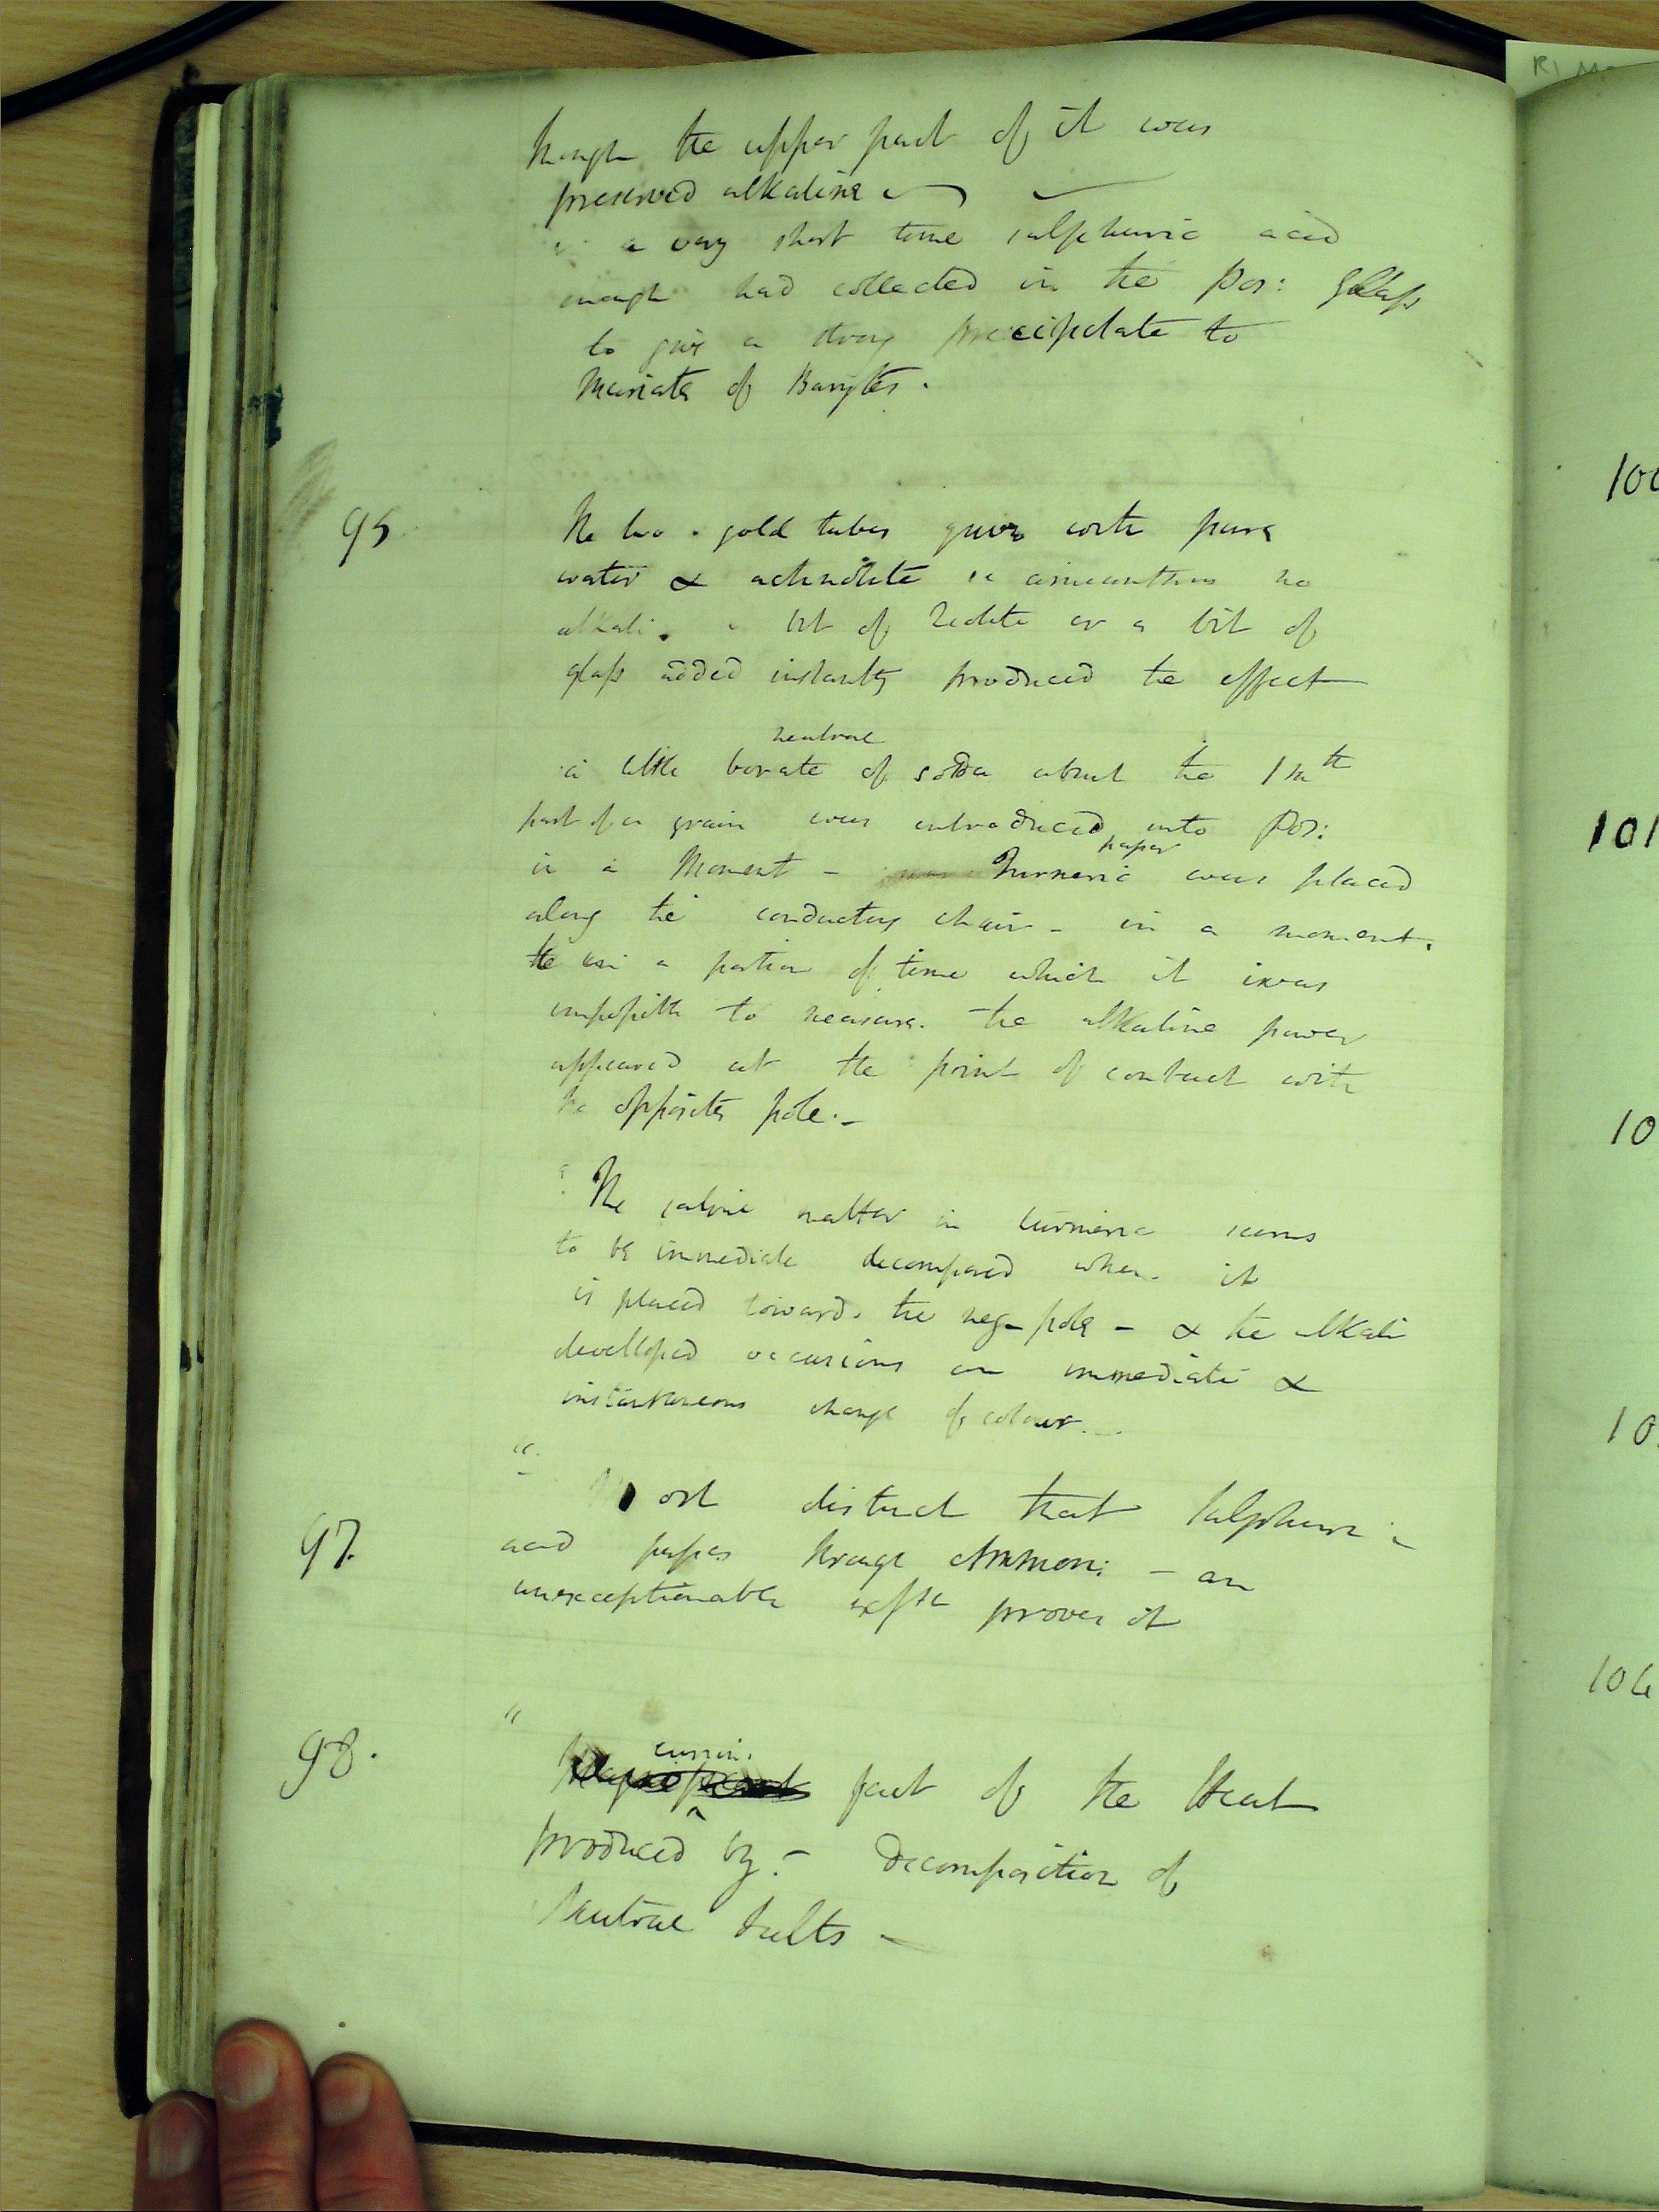 though the upper part of it was
preserved alkaline
in a very short time sulphuric acid
enough had collected in the Pos: Glass
to give a strong precipitate to
Muriate of Barytes.
95
The two gold tubes gave with pure
water & actinolite or amianthus no
alkali. a bit of Zeolite or a bit of
glass added instantly produced the effect
neutral
a little borate of soda about the
part of a grain was introduced into Pos:
paper
in a Moment - Turmeric was placed
along the conducting chain - in a moment.
in a portion of time which it was
impossible to measure. the alkaline power
appeared at the point of contact with
the opposite pole. -
The saline matter in turmeric seems
to be immediate decomposed when it
is placed towards the neg - pole - & the alkali
developed occasions an immediate &
instantaneous change of colour.
"
Most distinct that Sulphuric
97.
acid passes through Ammon: - an
unexceptionable expt proves it
"
98.
curious
part of the Heat
produced by - Decomposition of
Neutral Salts -
R1 M
100
101
10
10
104